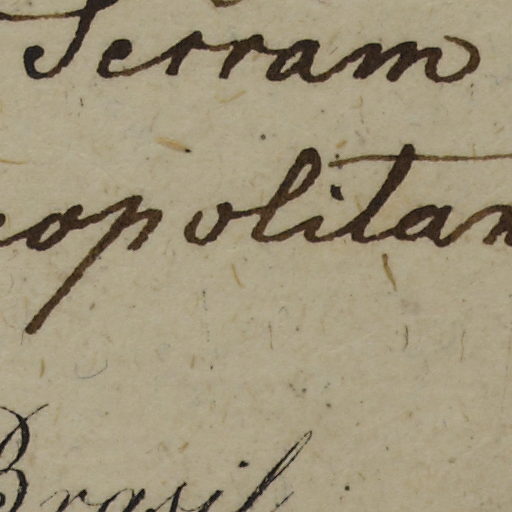 Serram
eopolitan
Brasil.